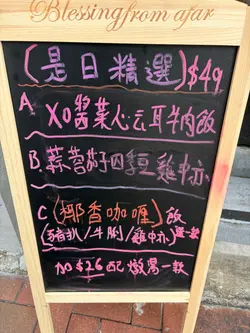 Blessing from afar
(是日精選)$49
A XO醬菜心云耳牛肉飯
B. 蒜蓉茄子四季豆雞中亦
C (椰香咖喱)飯
(豬扒/牛脷/雞中亦)選一款
加$26配燉湯一款